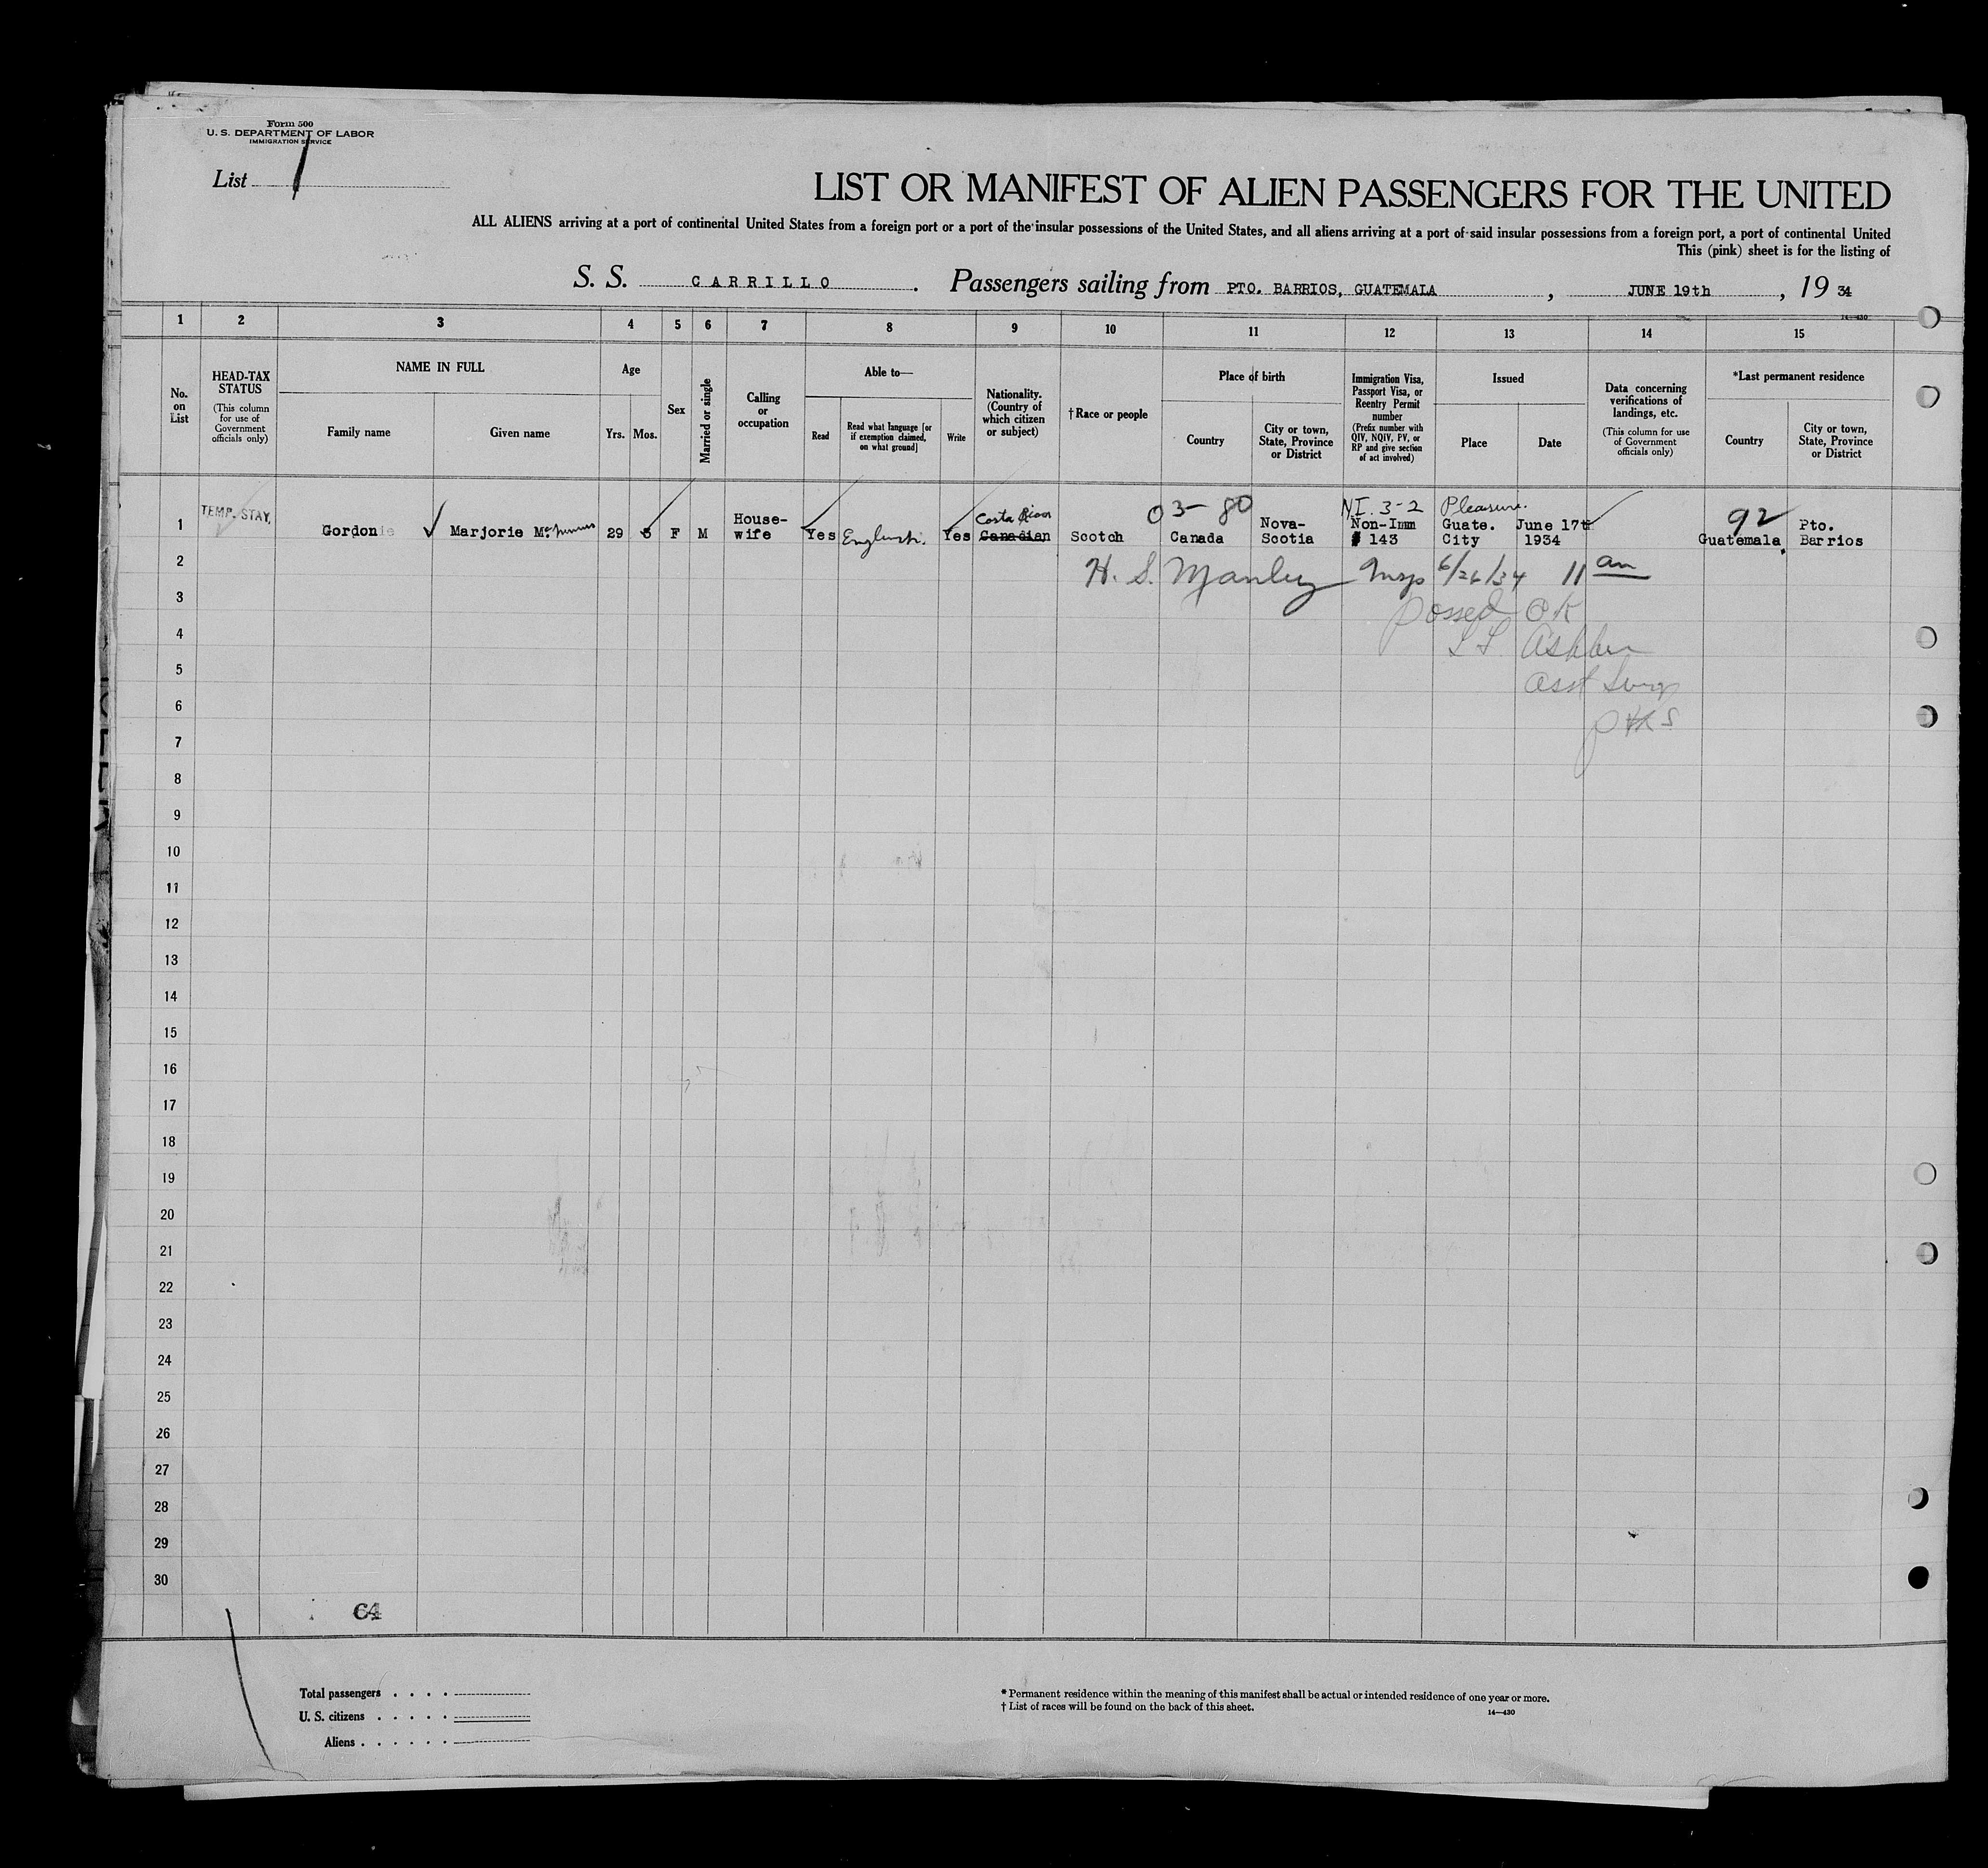 Form 500
U. S. DEPARTMENT OF LABOR
IMMIGRATION SERVICE
List 1
LIST OR MANIFEST OF ALIEN PASSENGERS FOR THE UNITED
ALL ALIENS arriving at a port of continental United States from a foreign port or a port of the insular possessions of the United States, and all aliens arriving at a port of said insular possessions from a foreign port, a port of continental United
This (pink) sheet is for the listing of
S. S. CARRILLO. Passengers sailing from PTO. BARRIOS, GUATEMALA, JUNE 19th, 19 34
14—430
1 2 3 4 5 6 7 8 9 10 11 12 13 14 15
No. on List
HEAD-TAX STATUS
(This column for use of Government officials only)
NAME IN FULL
Family name
Given name
Age
Yrs. Mos.
Sex
Married or single
Calling or occupation
Able to—
Read
Read what language [or if exemption claimed, on what ground]
Write
Nationality. (Country of which citizen or subject)
†Race or people
Place of birth
Country
City or town, State, Province or District
Immigration Visa, Passport Visa, or Reentry Permit number
(Prefix number with QIV, NQIV, PV, or RP and give section of act involved)
Issued
Place
Date
Data concerning verifications of landings, etc.
(This column for use of Government officials only)
*Last permanent residence
Country
City or town, State, Province or District
03-80 NI. 3-2 Pleasure. 92
1 TEMP. STAY. Gordon Marjorie 29 5 F M House-wife Yes English. Yes Costa Rican Canadian Scotch Canada Nova-Scotia Non-Imm # 143 Guate. City June 17th 1934 Guatemala. Pto. Barrios
2 H. S. Manley Insp 6/26/34 11 am
3 passed OK
4
5 Asst Surg
6
7
8
9
10
11
12
13
14
15
16
17
18
19
20
21
22
23
24
25
26
27
28
29
30
64
Total passengers . . . .
U. S. citizens . . . . .
Aliens . . . . . .
* Permanent residence within the meaning of this manifest shall be actual or intended residence of one year or more.
† List of races will be found on the back of this sheet.
14—430